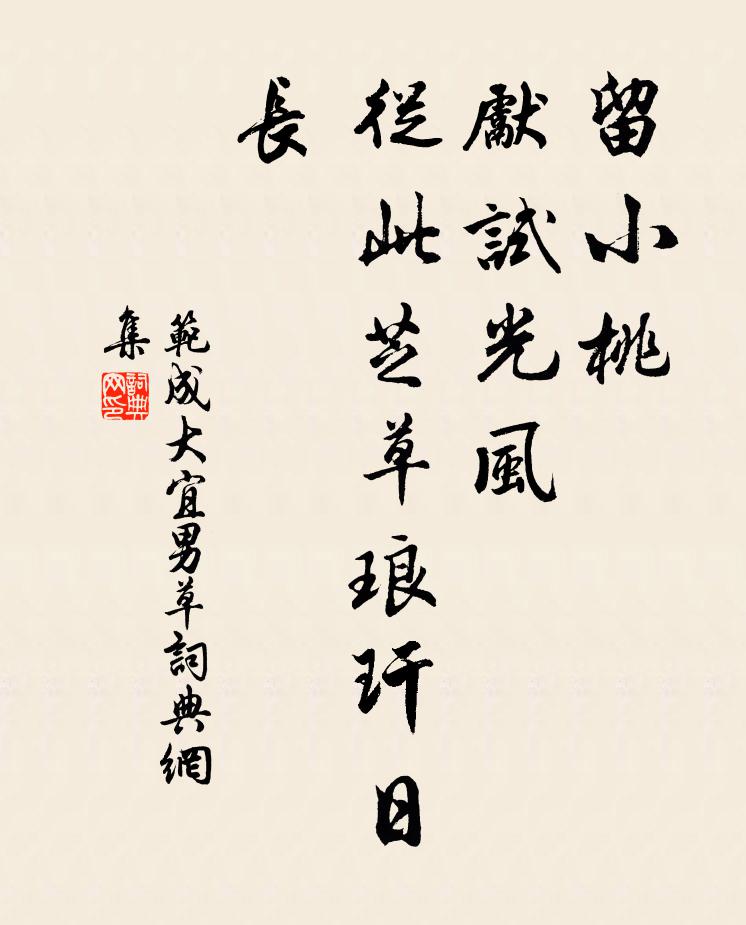 留小桃
獻試光風
從此芝草琅玕日
長
範成大宜男草詞典網
集
詞典
网印